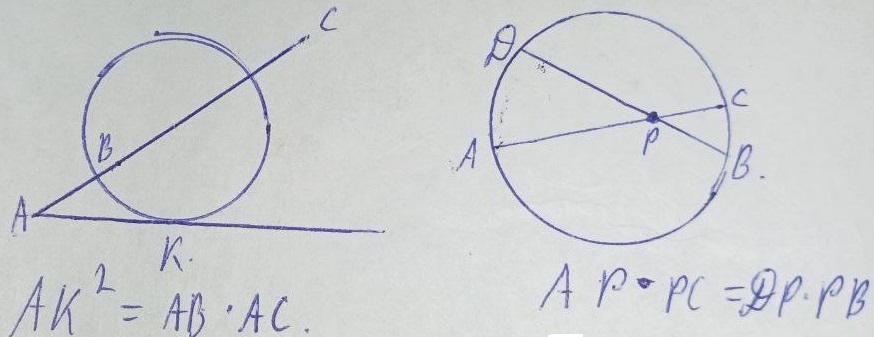 C
B
A
K.
AK² = AB · AC.
D
C
P
A
B.
AP · PC = DP · PB